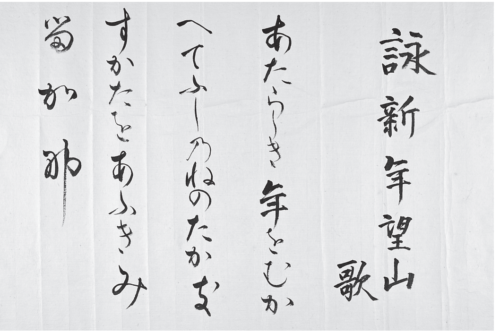 詠新年望山
歌
あたらしき年をむか
へてふし乃ねのたか支
すかたをあふきみ
留加那